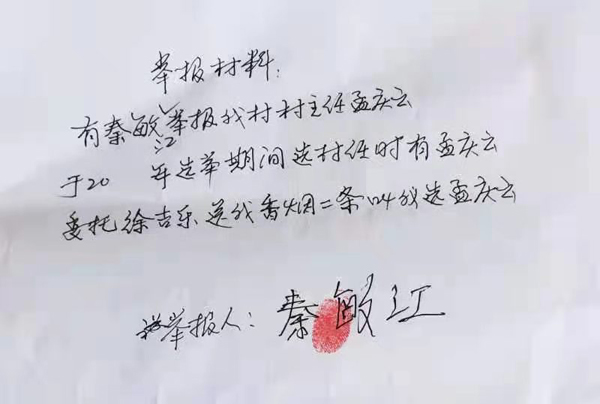 举报材料:
有秦敏江举报我村村主任孟庆云
于20 年选举期间选村任时有孟庆云
委托徐吉乐送我香烟二条叫我选孟庆云
举报人: 秦敏江